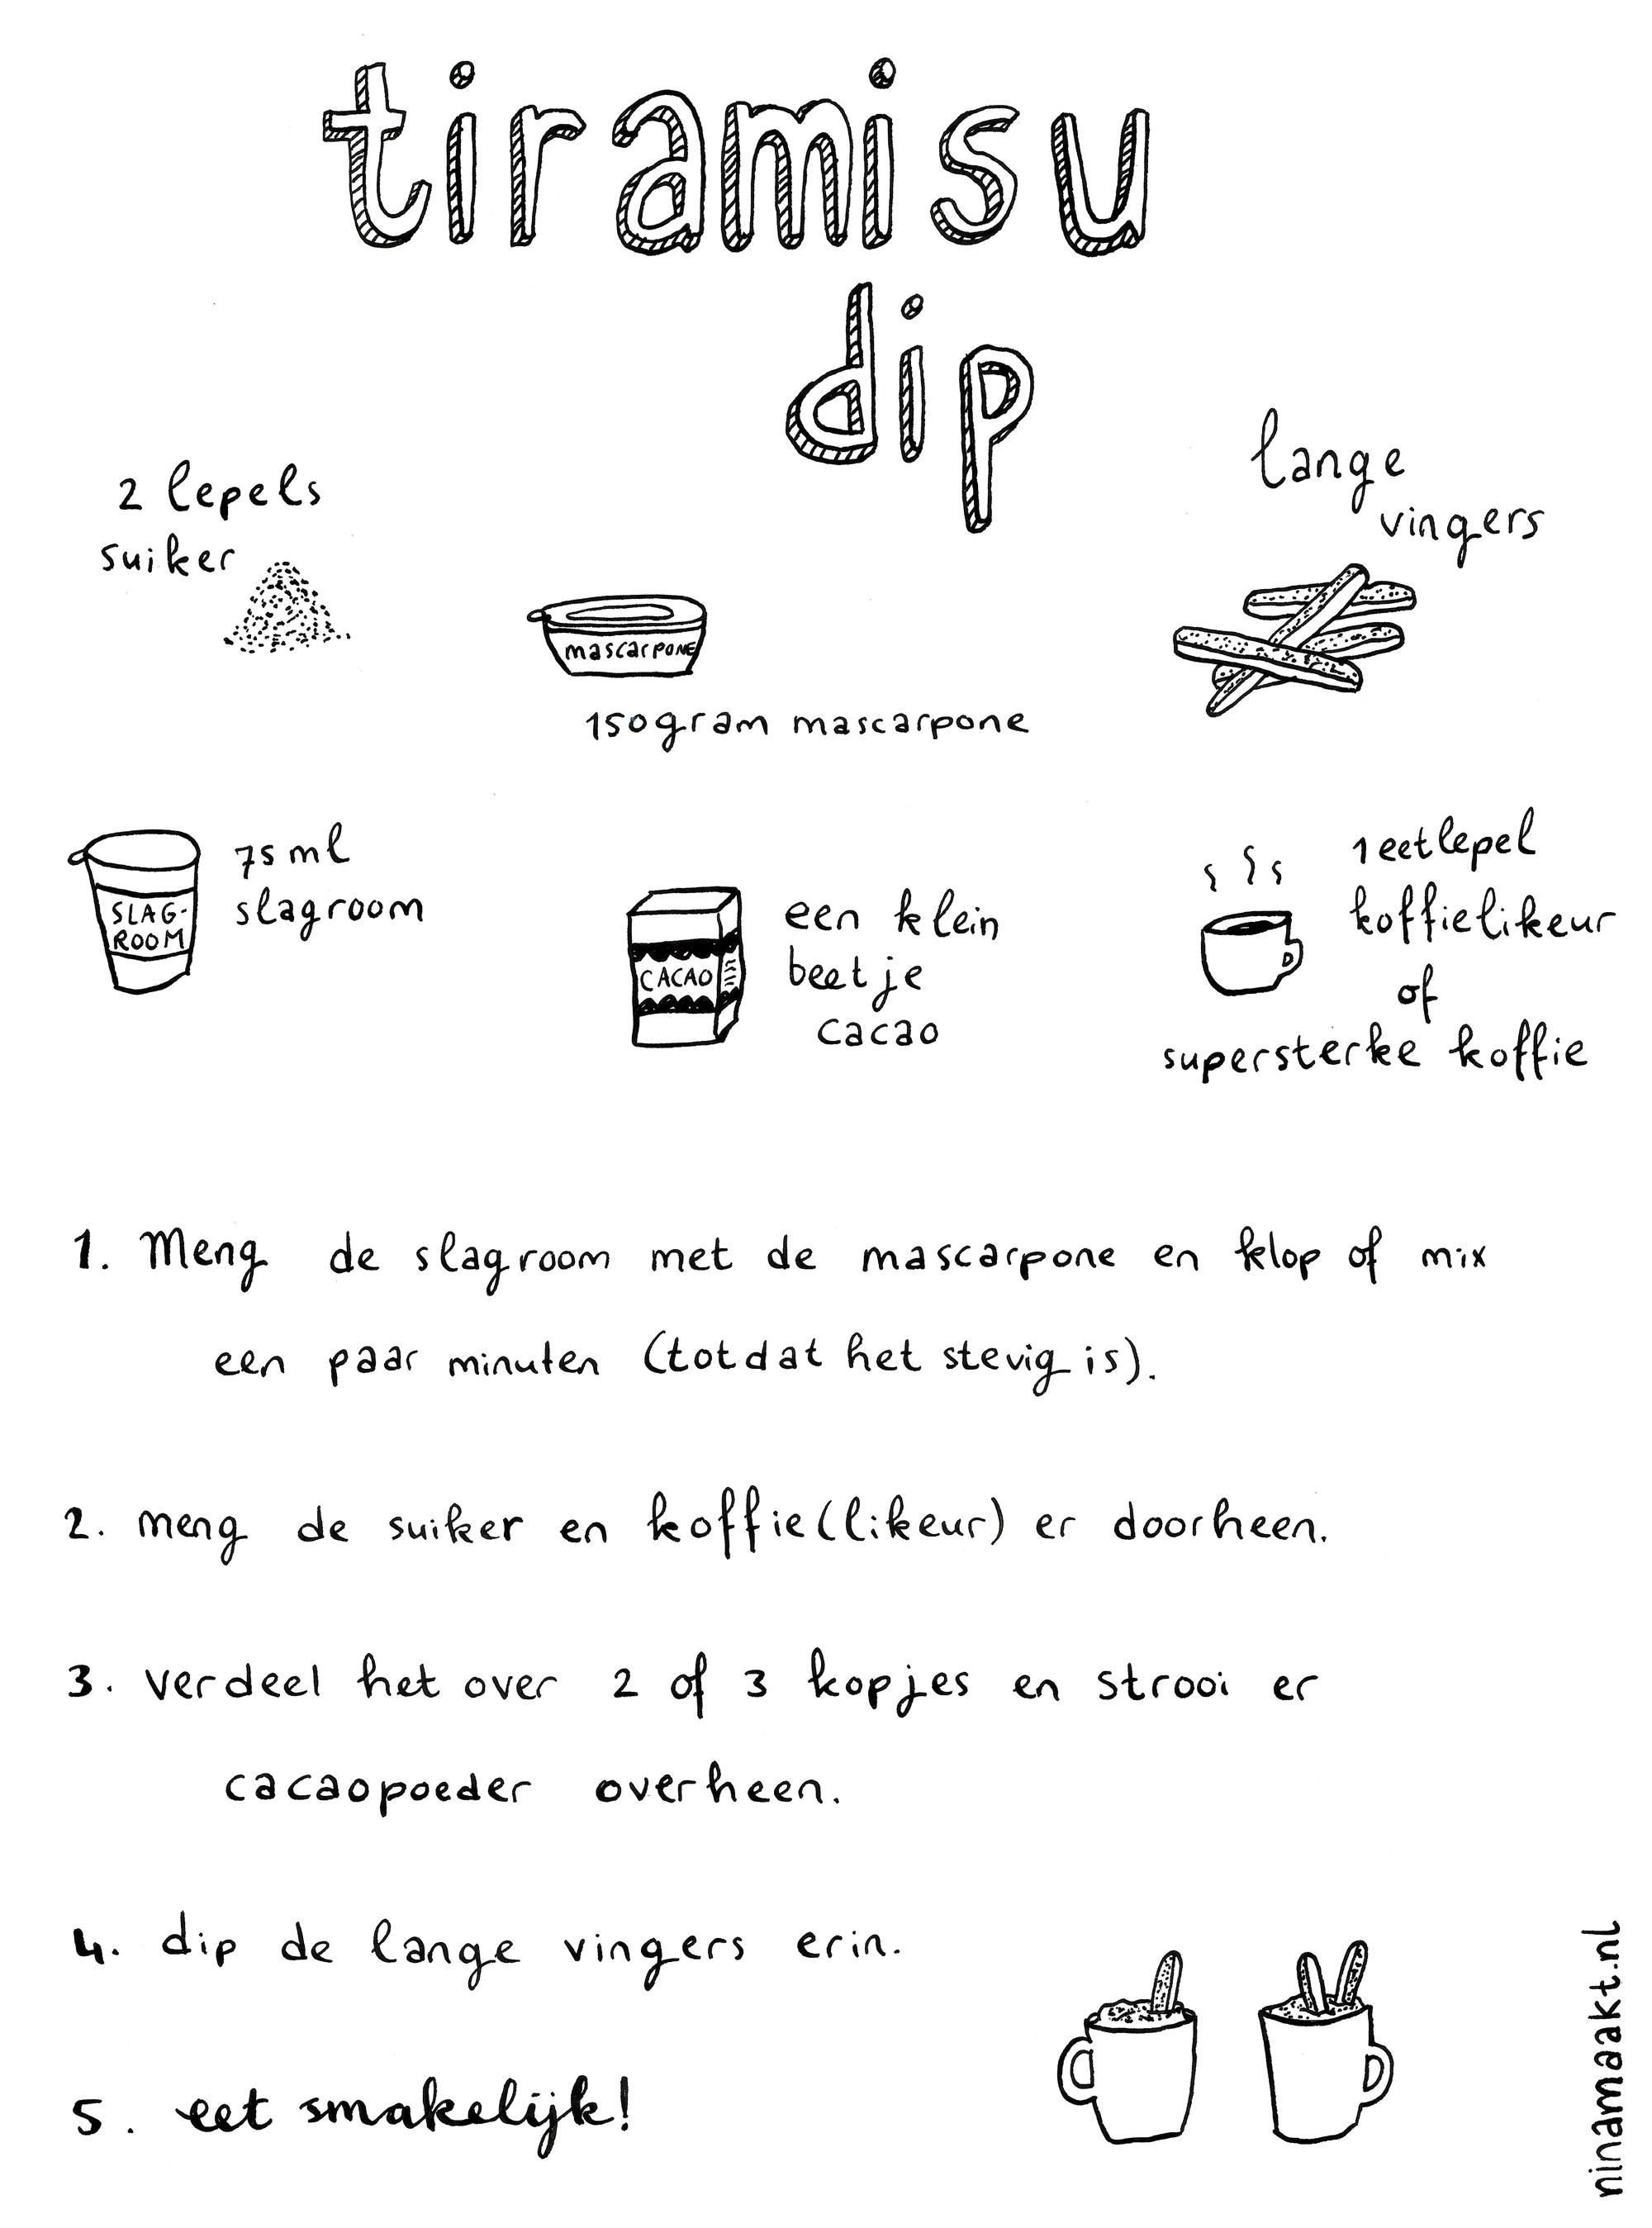 tiramisu
dip
2 lepels
suiker
mascarpone
150 gram mascarpone
lange
vingers
SLAG-
ROOM
75 ml
slagroom
CACAO
een klein
beetje
cacao
1 eetlepel
koffielikeur
of
supersterke koffie
1. Meng de slagroom met de mascarpone en klop of mix
een paar minuten (totdat het stevig is).
2. meng de suiker en koffie(likeur) er doorheen.
3. verdeel het over 2 of 3 kopjes en strooi er
cacaopoeder overheen.
4. dip de lange vingers erin.
5. eet smakelijk!
ninamaakt.nl